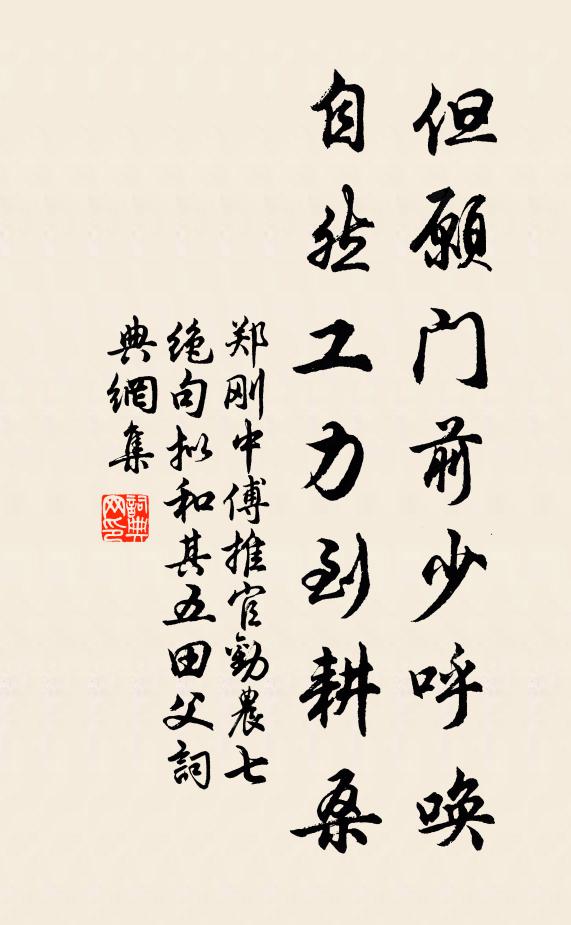 但願门前少呼唤
自然工力到耕桑
郑刚中傅推官勸農七
绝句拟和其五田父詞
典網集
詞典網印